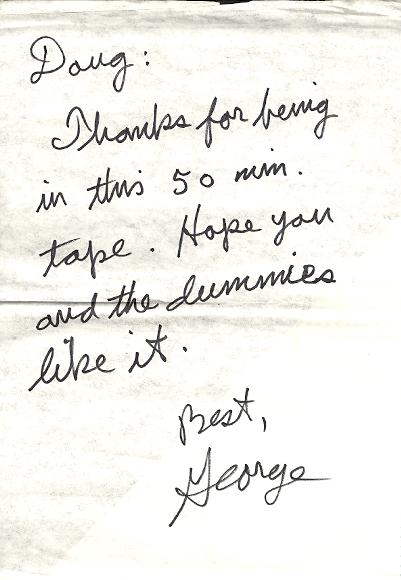 Doug:
Thanks for being
in this 50 min.
tape. Hope you
and the dummies
like it.
Best,
George